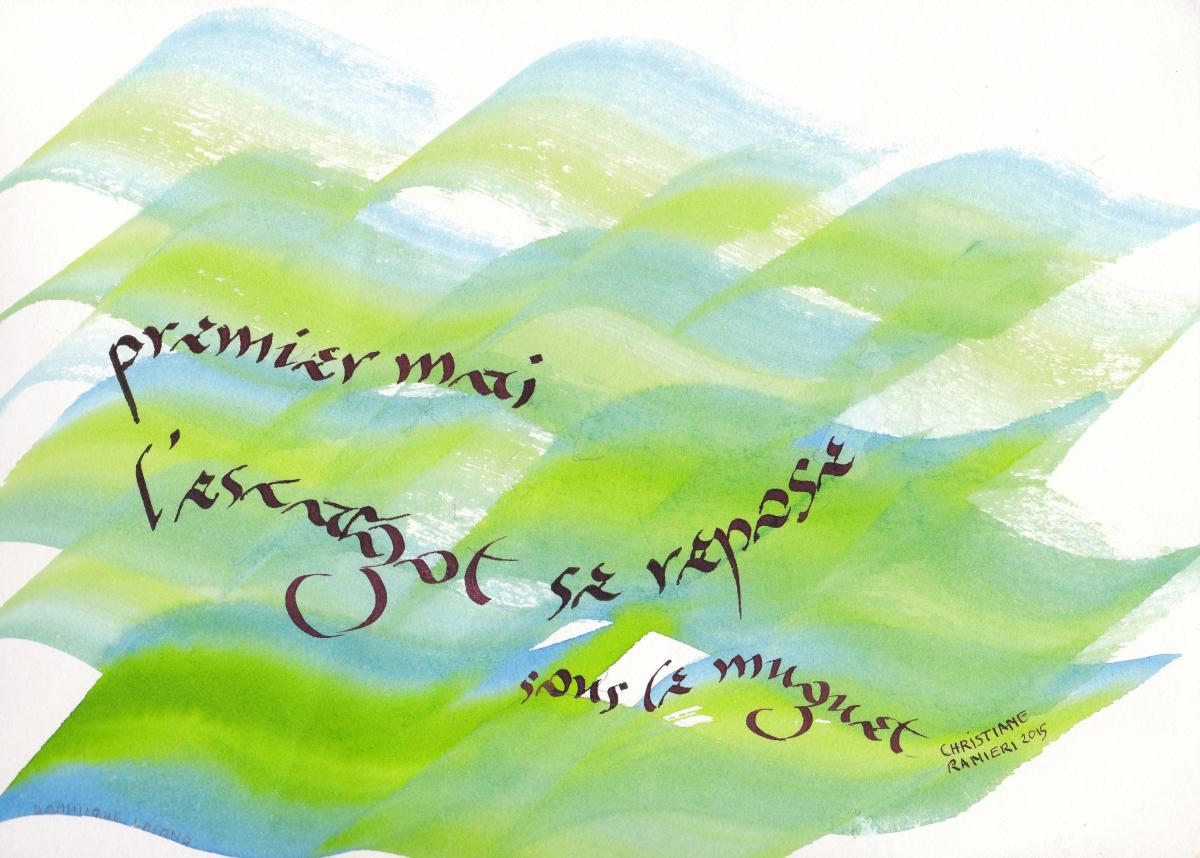 premier mai
l'escargot se repose
sous le muguet
CHRISTIANE
RANIERI 2015